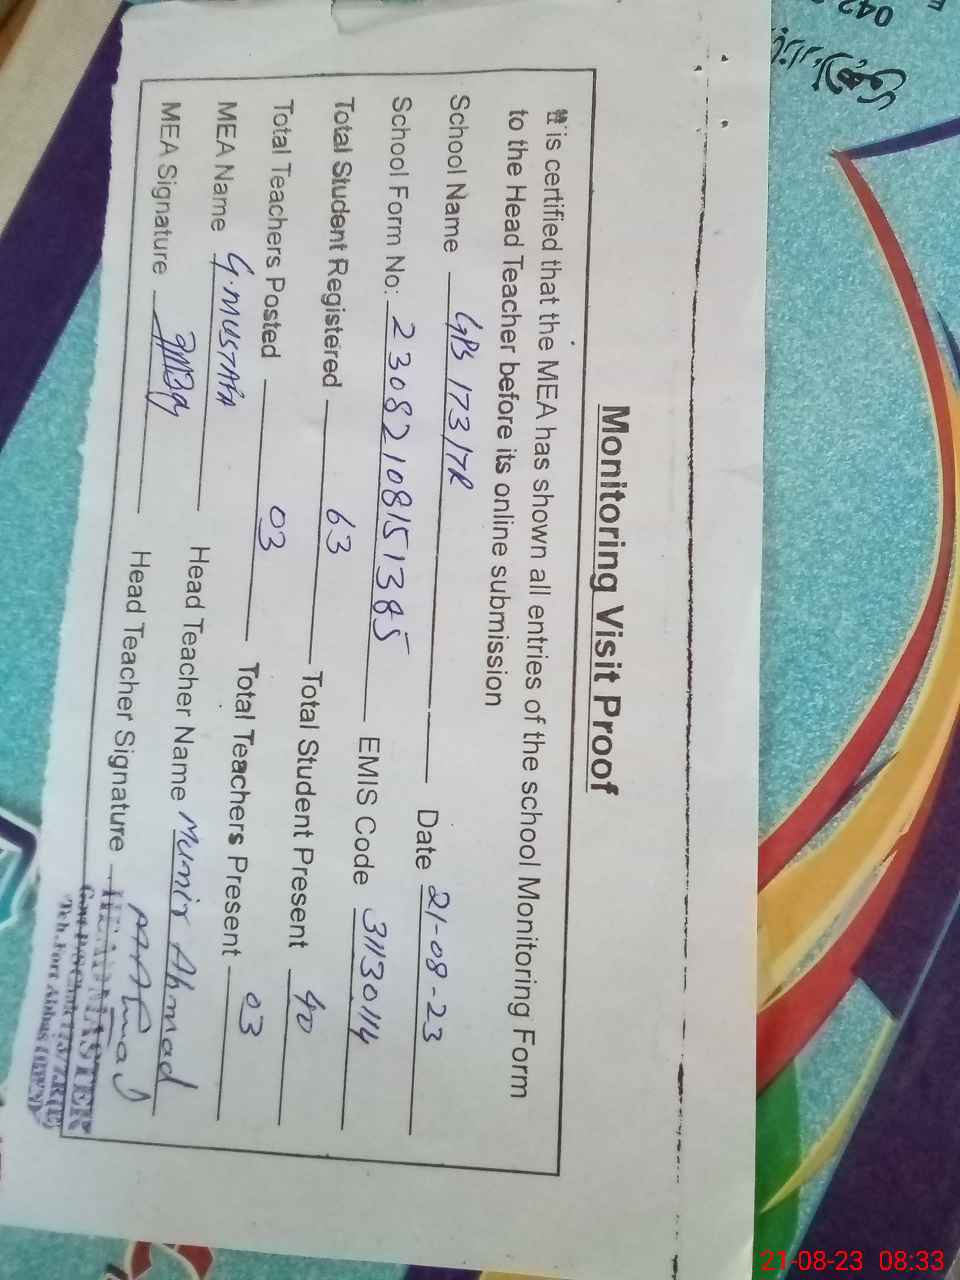 Monitoring Visit Proof
It is certified that the MEA has shown all entries of the school Monitoring Form
to the Head Teacher before its online submission
School Name GPS 173/7R Date 21-08-23
School Form No: 23082108151385 EMIS Code 31130114
Total Student Registered 63 Total Student Present 40
Total Teachers Posted 03 Total Teachers Present 03
MEA Name G.MUSTAFA Head Teacher Name Munir Ahmad
MEA Signature Head Teacher Signature
HEADMASTER
Teh. Fort Abbas
042
21-08-23 08:33